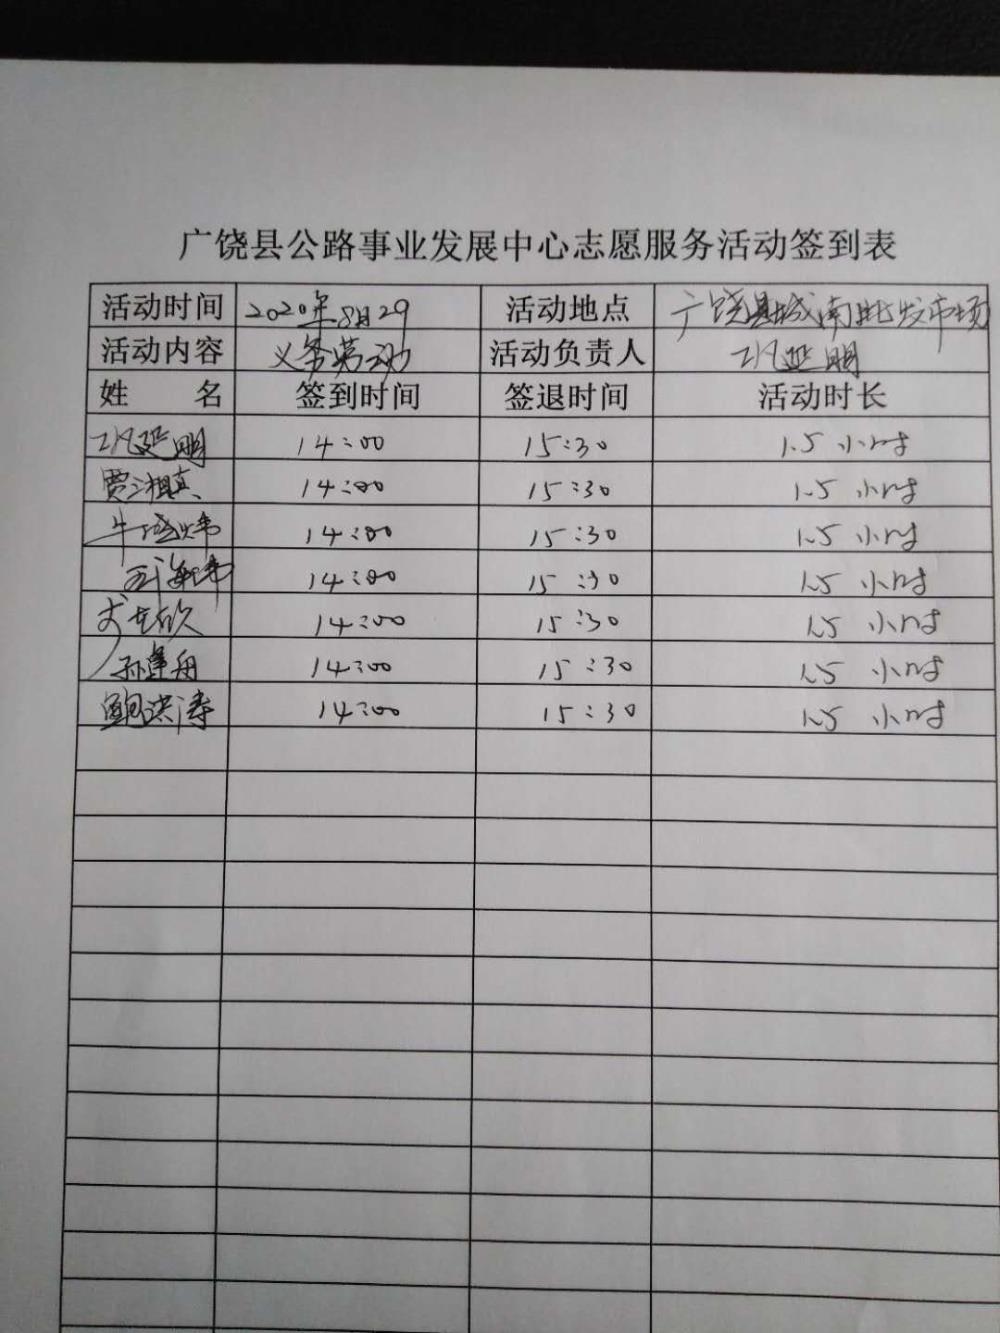 广饶县公路事业发展中心志愿服务活动签到表
活动时间 2020年8月29 活动地点 广饶县城南批发市场
活动内容 义务劳动 活动负责人 巩延明
姓 名 签到时间 签退时间 活动时长
巩延明 14:00 15:30 1.5 小时
14:00 15:30 1.5 小时
14:00 15:30 1.5 小时
14:00 15:30 1.5 小时
14:00 15:30 1.5 小时
孙建舟 14:00 15:30 1.5 小时
鲍洪涛 14:00 15:30 1.5 小时